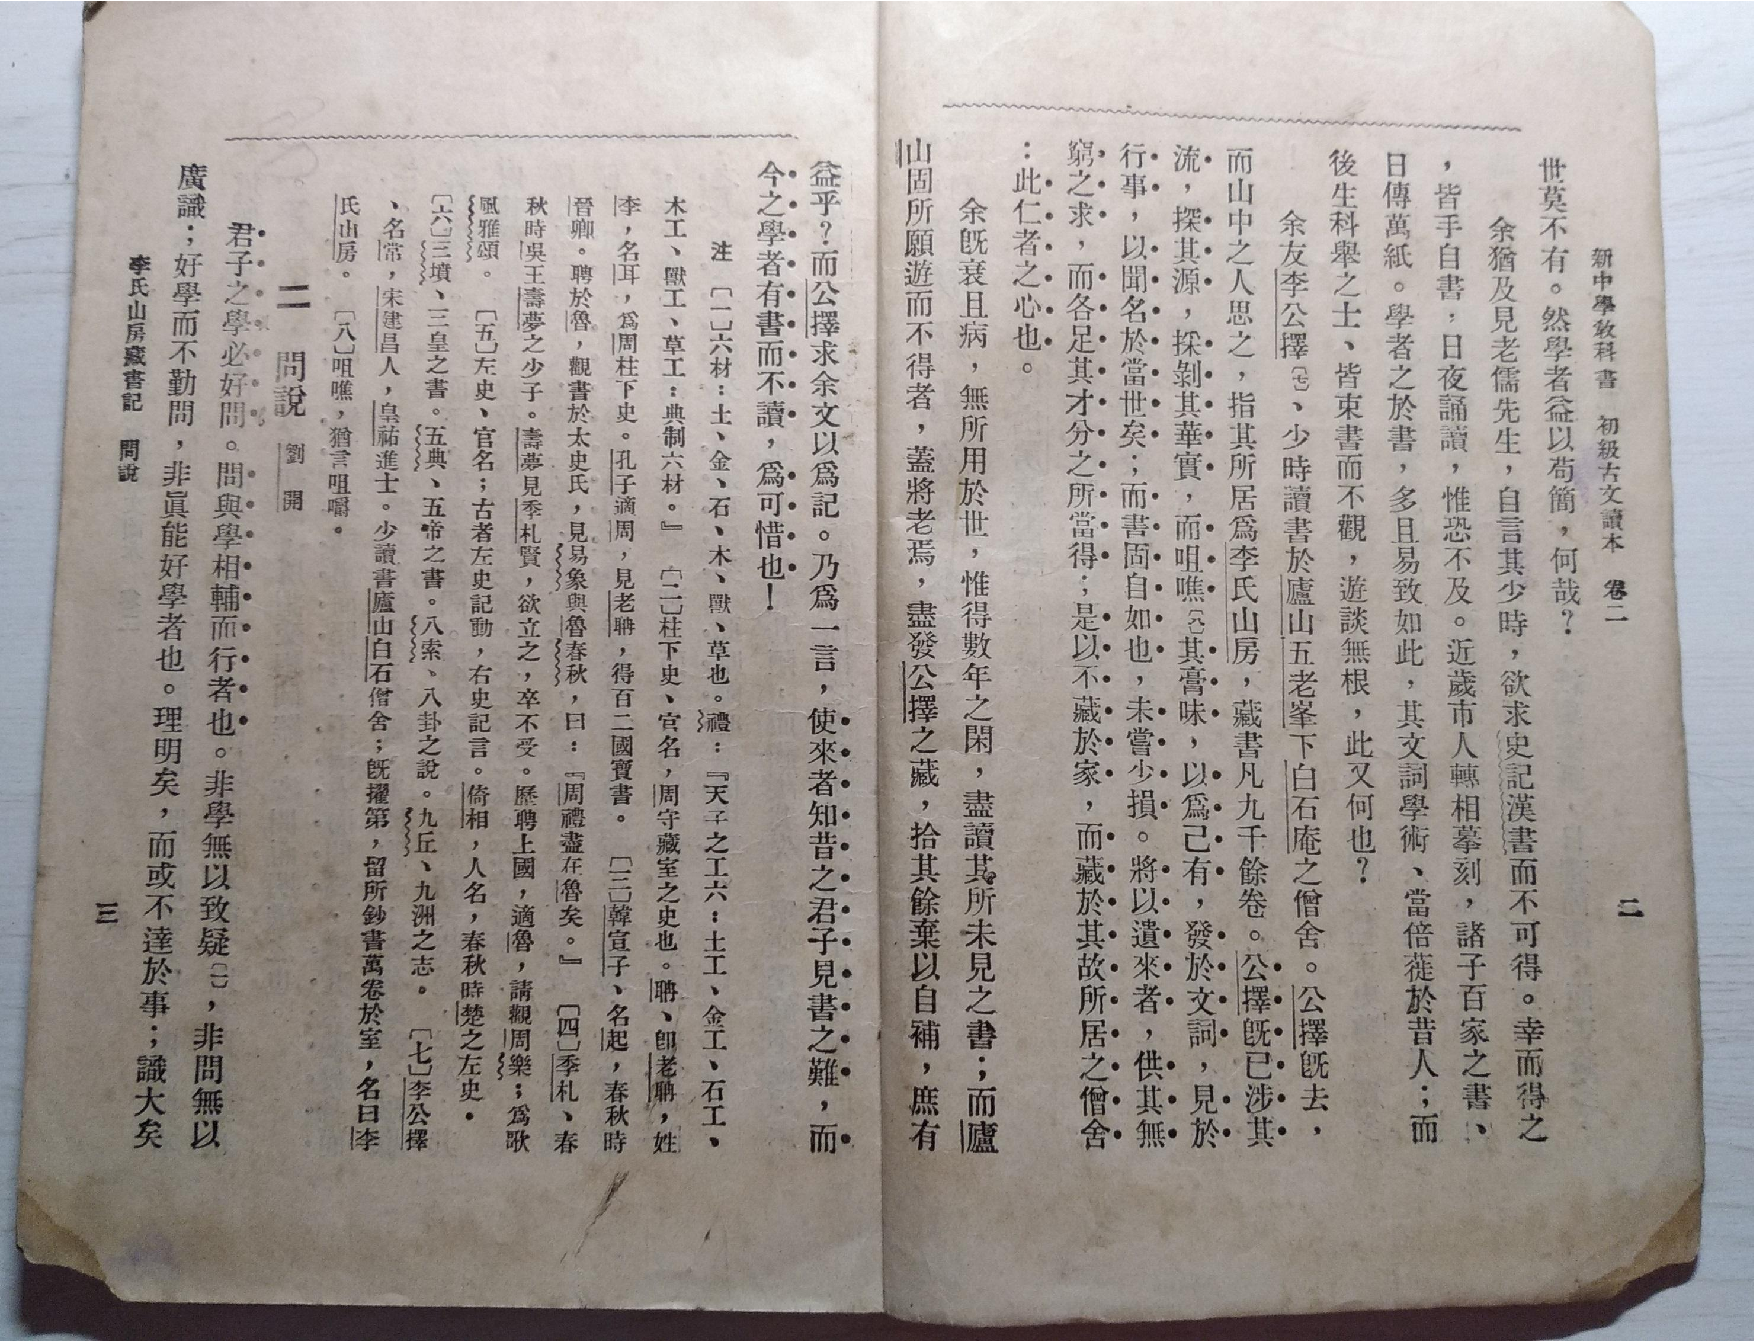 新中學教科書　初級古文讀本　卷二
二
世莫不有。然學者益以苟簡，何哉？
余猶及見老儒先生，自言其少時，欲求史記漢書而不可得。幸而得之
，皆手自書，日夜誦讀，惟恐不及。近歲市人轉相摹刻，諸子百家之書、
日傳萬紙。學者之於書，多且易致如此，其文詞學術、當倍蓰於昔人；而
後生科舉之士、皆束書而不觀，遊談無根，此又何也？
余友李公擇〔七〕、少時讀書於廬山五老峯下白石庵之僧舍。公擇旣去，
而山中之人思之，指其所居爲李氏山房，藏書凡九千餘卷。公擇旣已涉其
流，探其源，採剝其華實，而咀嚼〔八〕其膏味，以爲己有，發於文詞，見於
行事，以聞名於當世矣；而書固自如也，未嘗少損。將以遺來者，供其無
窮之求，而各足其才分之所當得；是以不藏於家，而藏於其故所居之僧舍
：此仁者之心也。
余旣衰且病，無所用於世，惟得數年之閑，盡讀其所未見之書；而廬
山固所願遊而不得者，蓋將老焉，盡發公擇之藏，拾其餘棄以自補，庶有
益乎？而公擇求余文以爲記。乃爲一言，使來者知昔之君子見書之難，而
今之學者有書而不讀，爲可惜也！
注　〔一〕六材：土、金、石、木、獸、草也。禮：『天子之工六：土工、金工、石工、
木工、獸工、草工：典制六材。』　〔二〕柱下史、官名，周守藏室之史也。聃、卽老聃，姓
李，名耳，爲周柱下史。孔子適周，見老聃，得百二國寶書。　〔三〕韓宣子、名起，春秋時
晉卿。聘於魯，觀書於太史氏，見易象與魯春秋，曰：『周禮盡在魯矣。』　〔四〕季札、春
秋時吳王壽夢之少子。壽夢見季札賢，欲立之，卒不受。歷聘上國，適魯，請觀周樂；爲歌
風雅頌。　〔五〕左史、官名；古者左史記動，右史記言。倚相，人名，春秋時楚之左史．
〔六〕三墳、三皇之書。五典、五帝之書。八索、八卦之說。九丘、九洲之志。　〔七〕李公擇
、名常，宋建昌人，皇祐進士。少讀書廬山白石僧舍；旣擢第，留所鈔書萬卷於室，名曰李
氏山房。　〔八〕咀噍，猶言咀嚼。
二　問說　劉開
君子之學必好問。問與學相輔而行者也。非學無以致疑〔一〕，非問無以
廣識；好學而不勤問，非眞能好學者也。理明矣，而或不達於事；識大矣
李氏山房藏書記　問說
三